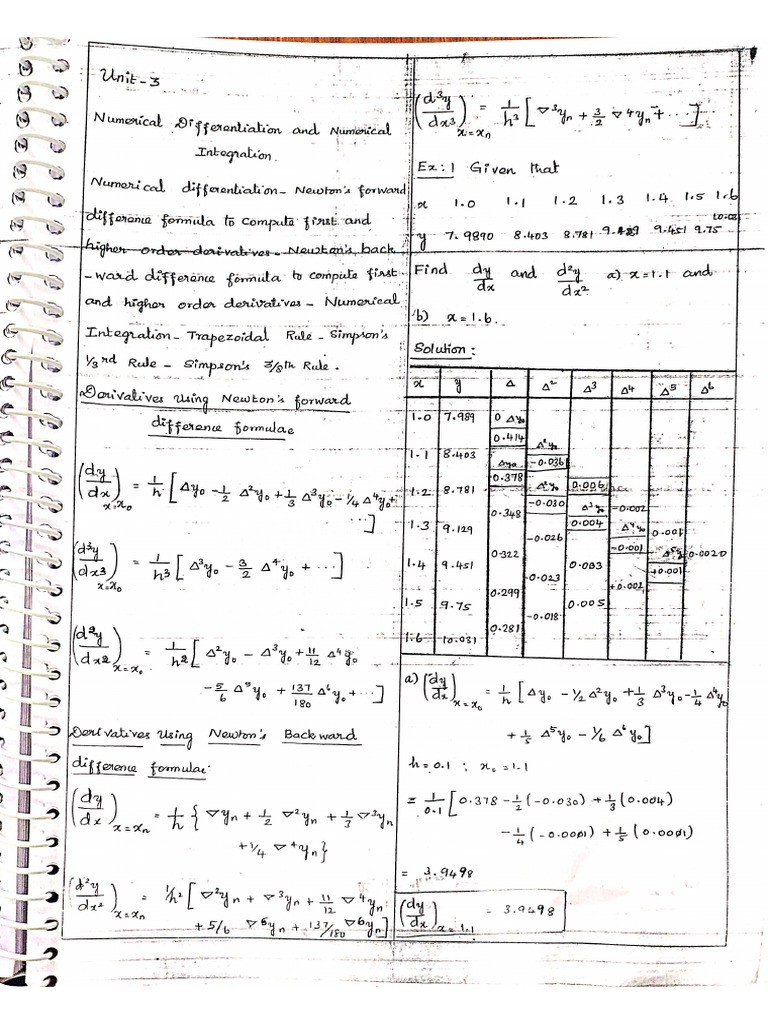 Unit-3
Numerical Differentiation and Numerical
Integration.
Numerical differentiation - Newton's forward
difference formula to compute first and
higher order derivatives - Newton's back
-ward difference formula to compute first
and higher order derivatives - Numerical
Integration - Trapezoidal Rule - Simpson's
1/3 rd Rule - Simpson's 3/8th Rule.
Derivatives Using Newton's forward
difference formulae
(dy/dx)x=x₀ = 1/h [Δy₀ - 1/2 Δ²y₀ + 1/3 Δ³y₀ - 1/4 Δ⁴y₀ +
...]
(d³y/dx³)x=x₀ = 1/h³ [Δ³y₀ - 3/2 Δ⁴y₀ + ...]
(d²y/dx²)x=x₀ = 1/h² [Δ²y₀ - Δ³y₀ + 11/12 Δ⁴y₀
- 5/6 Δ⁵y₀ + 137/180 Δ⁶y₀ + ...]
Derivatives Using Newton's Backward
difference formulae:
(dy/dx)x=xₙ = 1/h {∇yₙ + 1/2 ∇²yₙ + 1/3 ∇³yₙ
+ 1/4 ∇⁴yₙ}
(d²y/dx²)x=xₙ = 1/h² [∇²yₙ + ∇³yₙ + 11/12 ∇⁴yₙ
+ 5/6 ∇⁵yₙ + 137/180 ∇⁶yₙ]
(d³y/dx³)x=xₙ = 1/h³ [∇³yₙ + 3/2 ∇⁴yₙ + ...]
Ex: 1 Given that
x 1.0 1.1 1.2 1.3 1.4 1.5 1.6
y 7.9890 8.403 8.781 9.451 9.75
Find dy/dx and d²y/dx² a) x=1.1 and
b) x=1.6.
Solution:
x y Δ Δ² Δ³ Δ4 Δ⁵ Δ⁶
1.0 7.989 0 Δy₀
0.414 Δ²y₀
1.1 8.403 -0.036
Δy₀
0.378 Δ²y₀ 0.006
1.2 8.781 -0.030 Δ³y₀ -0.002
0.348 0.004 Δ⁴y₀ 0.001
1.3 9.129 -0.026 -0.001 Δ⁵y₀ 0.0020
0.322 0.003 +0.001
1.4 9.451 -0.023 +0.002
0.299 0.005
1.5 9.75 -0.018
0.281
1.6 10.031
a) (dy/dx)x=x₀ = 1/h [Δy₀ - 1/2 Δ²y₀ + 1/3 Δ³y₀ - 1/4 Δ⁴y₀
+ 1/5 Δ⁵y₀ - 1/6 Δ⁶y₀]
h = 0.1 ; x₀ = 1.1
= 1/0.1 [0.378 - 1/2 (-0.030) + 1/3 (0.004)
- 1/4 (-0.0001) + 1/5 (0.0001)
= 3.9498
(dy/dx)x=1.1 = 3.9498